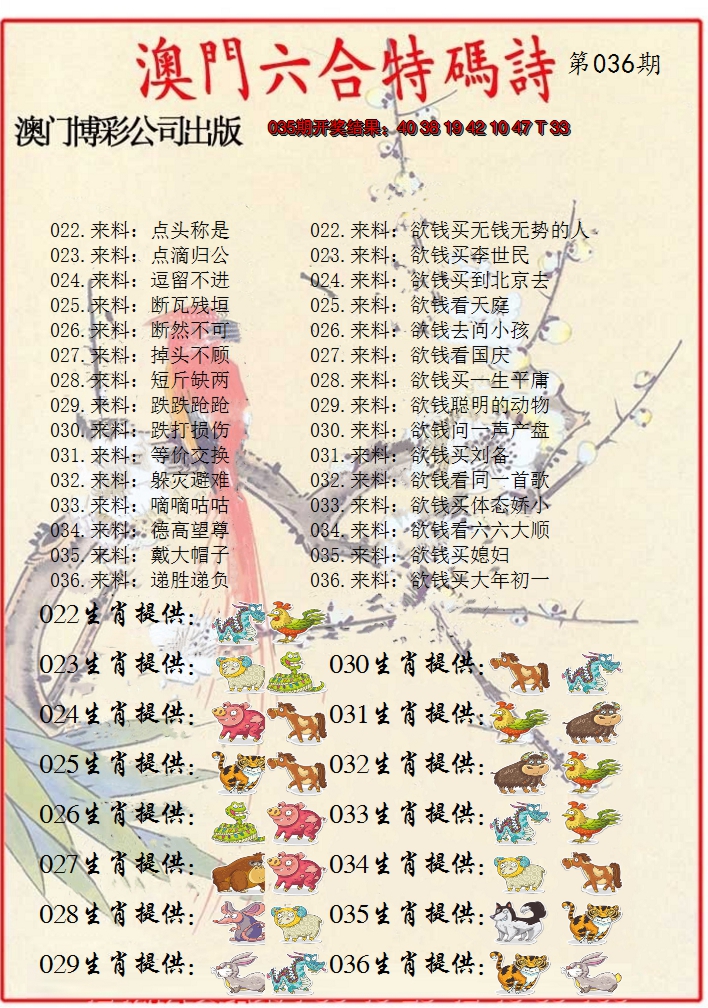 澳門六合特碼詩 第036期
澳门博彩公司出版 035期开奖结果：40 36 19 42 10 47 T 33
022.来料：点头称是 022.来料：欲钱买无钱无势的人
023.来料：点滴归公 023.来料：欲钱买李世民
024.来料：逗留不进 024.来料：欲钱买到北京去
025.来料：断瓦残垣 025.来料：欲钱看天庭
026.来料：断然不可 026.来料：欲钱去问小孩
027.来料：掉头不顾 027.来料：欲钱看国庆
028.来料：短斤缺两 028.来料：欲钱买一生平庸
029.来料：跌跌跄跄 029.来料：欲钱聪明的动物
030.来料：跌打损伤 030.来料：欲钱问一声产盘
031.来料：等价交换 031.来料：欲钱买刘备
032.来料：躲灾避难 032.来料：欲钱看同一首歌
033.来料：嘀嘀咕咕 033.来料：欲钱买体态娇小
034.来料：德高望尊 034.来料：欲钱看六六大顺
035.来料：戴大帽子 035.来料：欲钱买媳妇
036.来料：递胜递负 036.来料：欲钱买大年初一
022生肖提供：
023生肖提供： 030生肖提供：
024生肖提供： 031生肖提供：
025生肖提供： 032生肖提供：
026生肖提供： 033生肖提供：
027生肖提供： 034生肖提供：
028生肖提供： 035生肖提供：
029生肖提供： 036生肖提供：